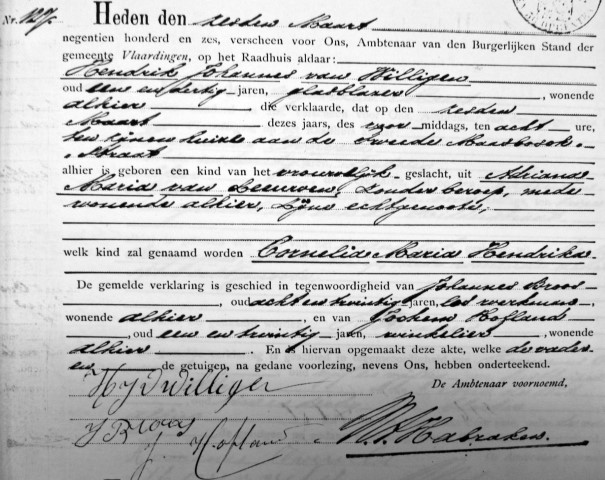 Nr. 127 Heden den zesden Maart
negentien honderd en zes, verscheen voor Ons, Ambtenaar van den Burgerlijken Stand der
gemeente Vlaardingen, op het Raadhuis aldaar:
Hendrik Johannes van Willigen
oud een en dertig jaren, glasblazer, wonende
alhier die verklaarde, dat op den zesden
Maart dezes jaars, des voor middags, ten acht ure,
ten zijnen huize aan de tweede Maasbosch-
straat
alhier is geboren een kind van het vrouwelijk geslacht, uit Adriana
Maria van Leeuwen, zonder beroep, mede
wonende alhier, zijne echtgenoote;
welk kind zal genaamd worden Cornelia Maria Hendrika
De gemelde verklaring is geschied in tegenwoordigheid van Johannes Broos
, oud acht en twintig jaren, los werkman,
wonende alhier, en van Jochem Hofland
, oud een en twintig jaren, winkelier, wonende
alhier. En is hiervan opgemaakt deze akte, welke de vader
en de getuigen, na gedane voorlezing, nevens Ons, hebben onderteekend.
HJvWilligen
De Ambtenaar voornoemd,
J Broos
J. Hofland
Habraken